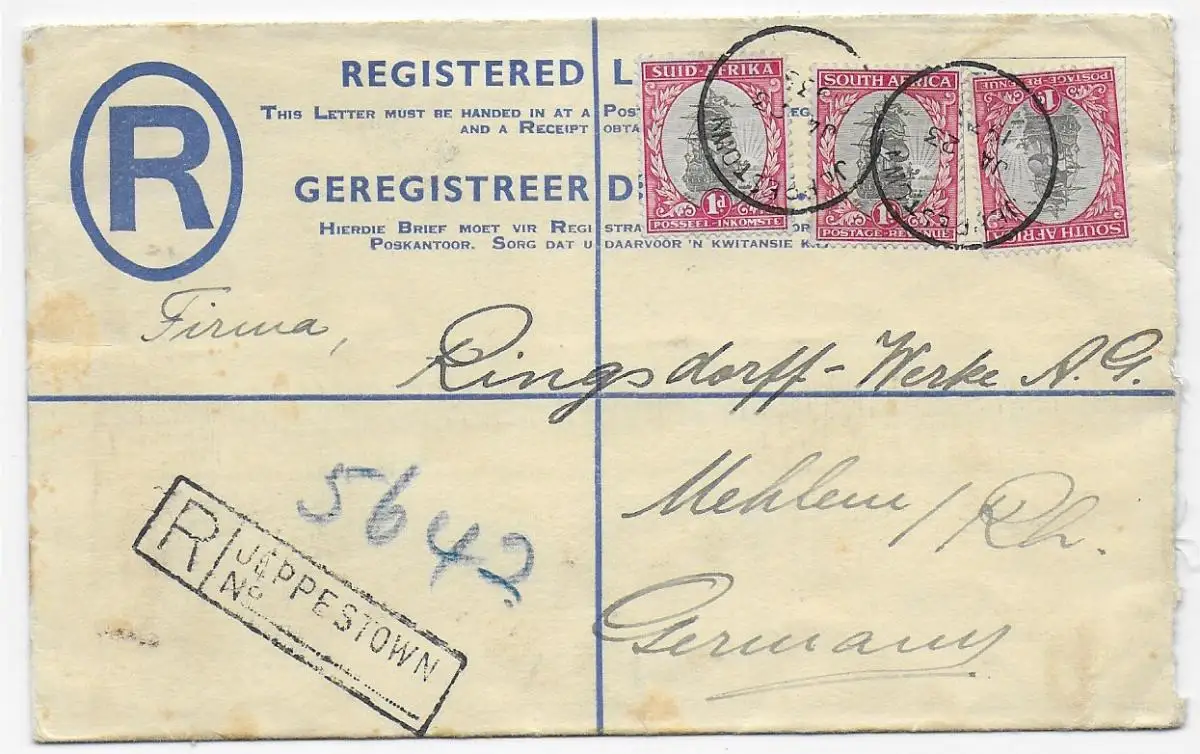 R
REGISTERED L
THIS LETTER MUST BE HANDED IN AT A POS REG
AND A RECEIPT OBTA
GEREGISTREER D
HIERDIE BRIEF MOET VIR REGISTRA OR
POSKANTOOR. SORG DAT U DAARVOOR 'N KWITANSIE K
SUID-AFRIKA
1d
POSSEEL-INKOMSTE
SOUTH AFRICA
1d
POSTAGE-REVENUE
SOUTH AFRICA
1d
POSTAGE-REVENUE
JEPPESTOWN
JA
33
JEPPESTOWN
JA
Firma,
Ringsdorff-Werke A.G.
Mehlem/Rh.
Germany
5642
R
JEPPESTOWN
No